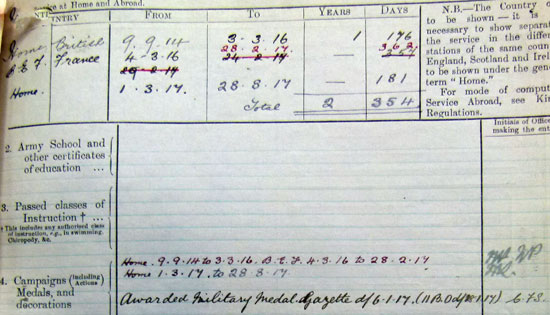 at Home and Abroad.
COUNTRY FROM TO YEARS DAYS
Home British 9.9.14 3.3.16 1 176
28.2.17. 362
B.E.F. France 4-3-16 24.2.17 357
Home. 1.3.17. 28.8.17 — 181
Total 2 354
N.B.—The Country
to be shown—it is
necessary to show separa
the service in the differ
stations of the same coun
England, Scotland and Irel
to be shown under the gener
term "Home."
For mode of comput
Service Abroad, see Kin
Regulations.
Initials of Offic
making the ent
2. Army School and
other certificates
of education ...
3. Passed classes of
Instruction † ...
† This includes any authorised class
of instruction, e.g., in swimming,
Chiropody, &c.
Home. 9.9.14 to 3.3.16. B.E.F. 4.3.16 to 28.2.17
Home 1.3.17. to 28.8.17
4. Campaigns (including Actions)
Medals, and
decorations
Awarded Military Medal Gazette d/6.1.17.